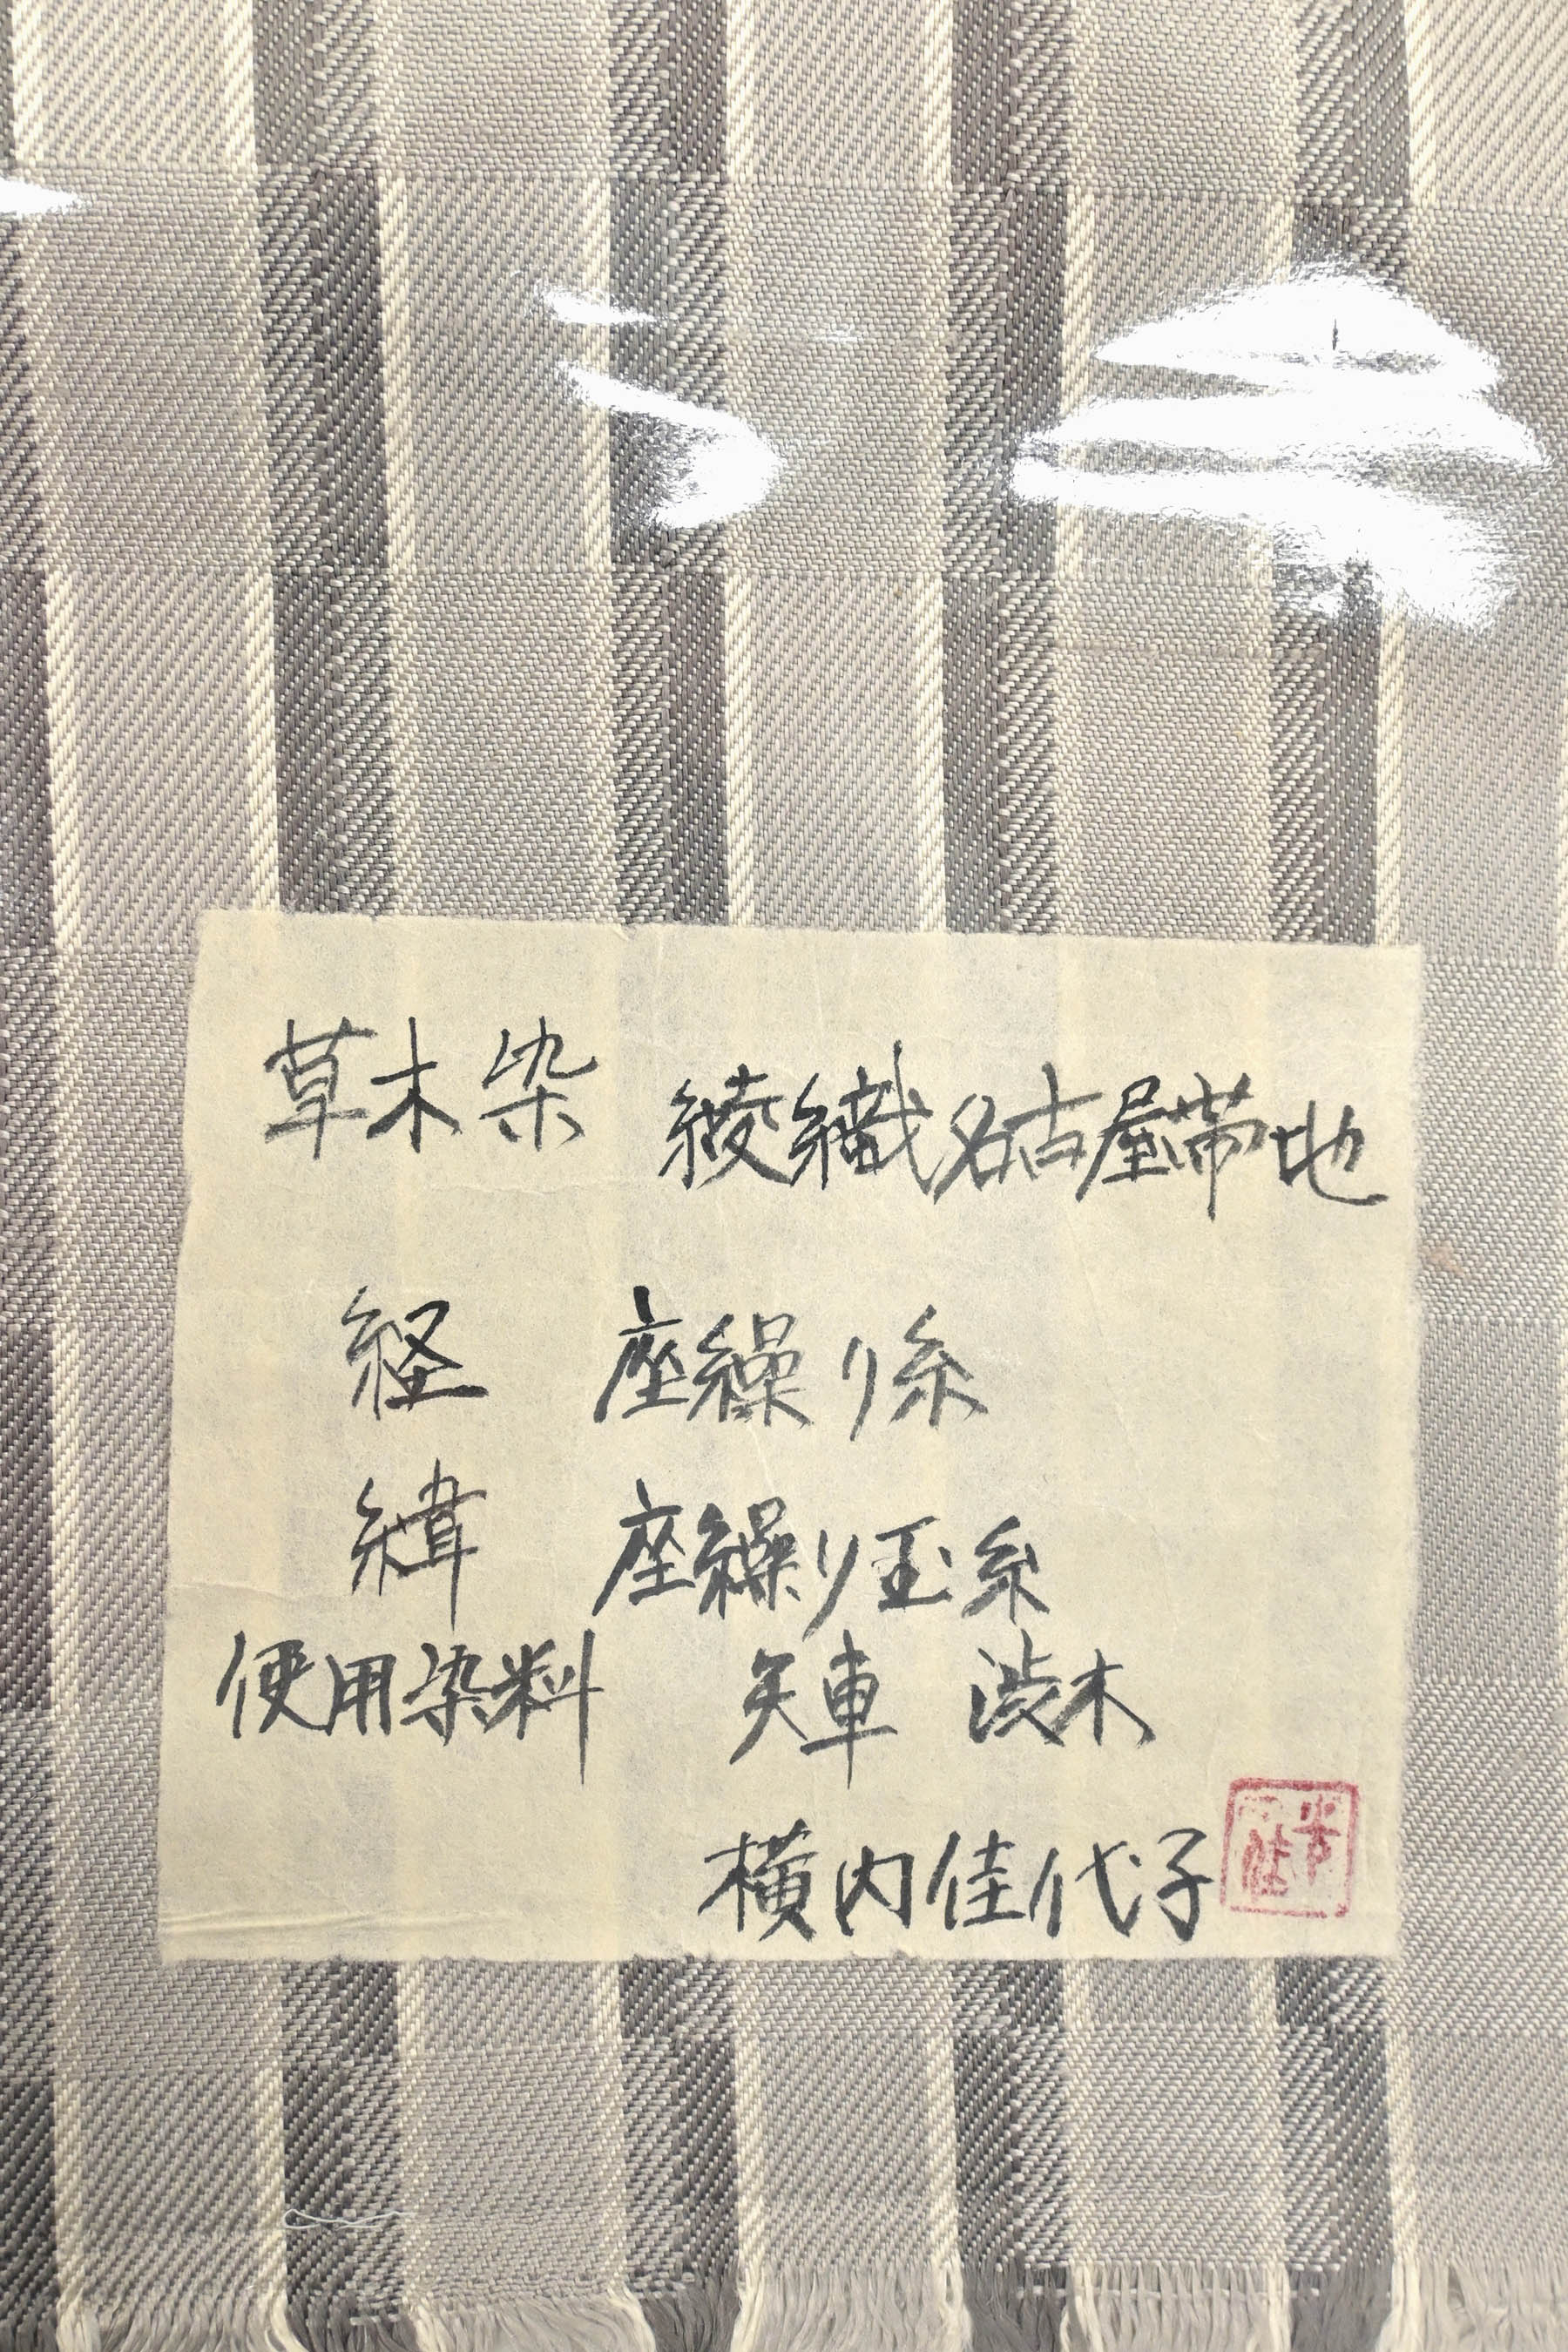 草木染 綾織名古屋帯地
経 座繰り糸
緯 座繰り玉糸
使用染料 矢車 渋木
横内佳代子